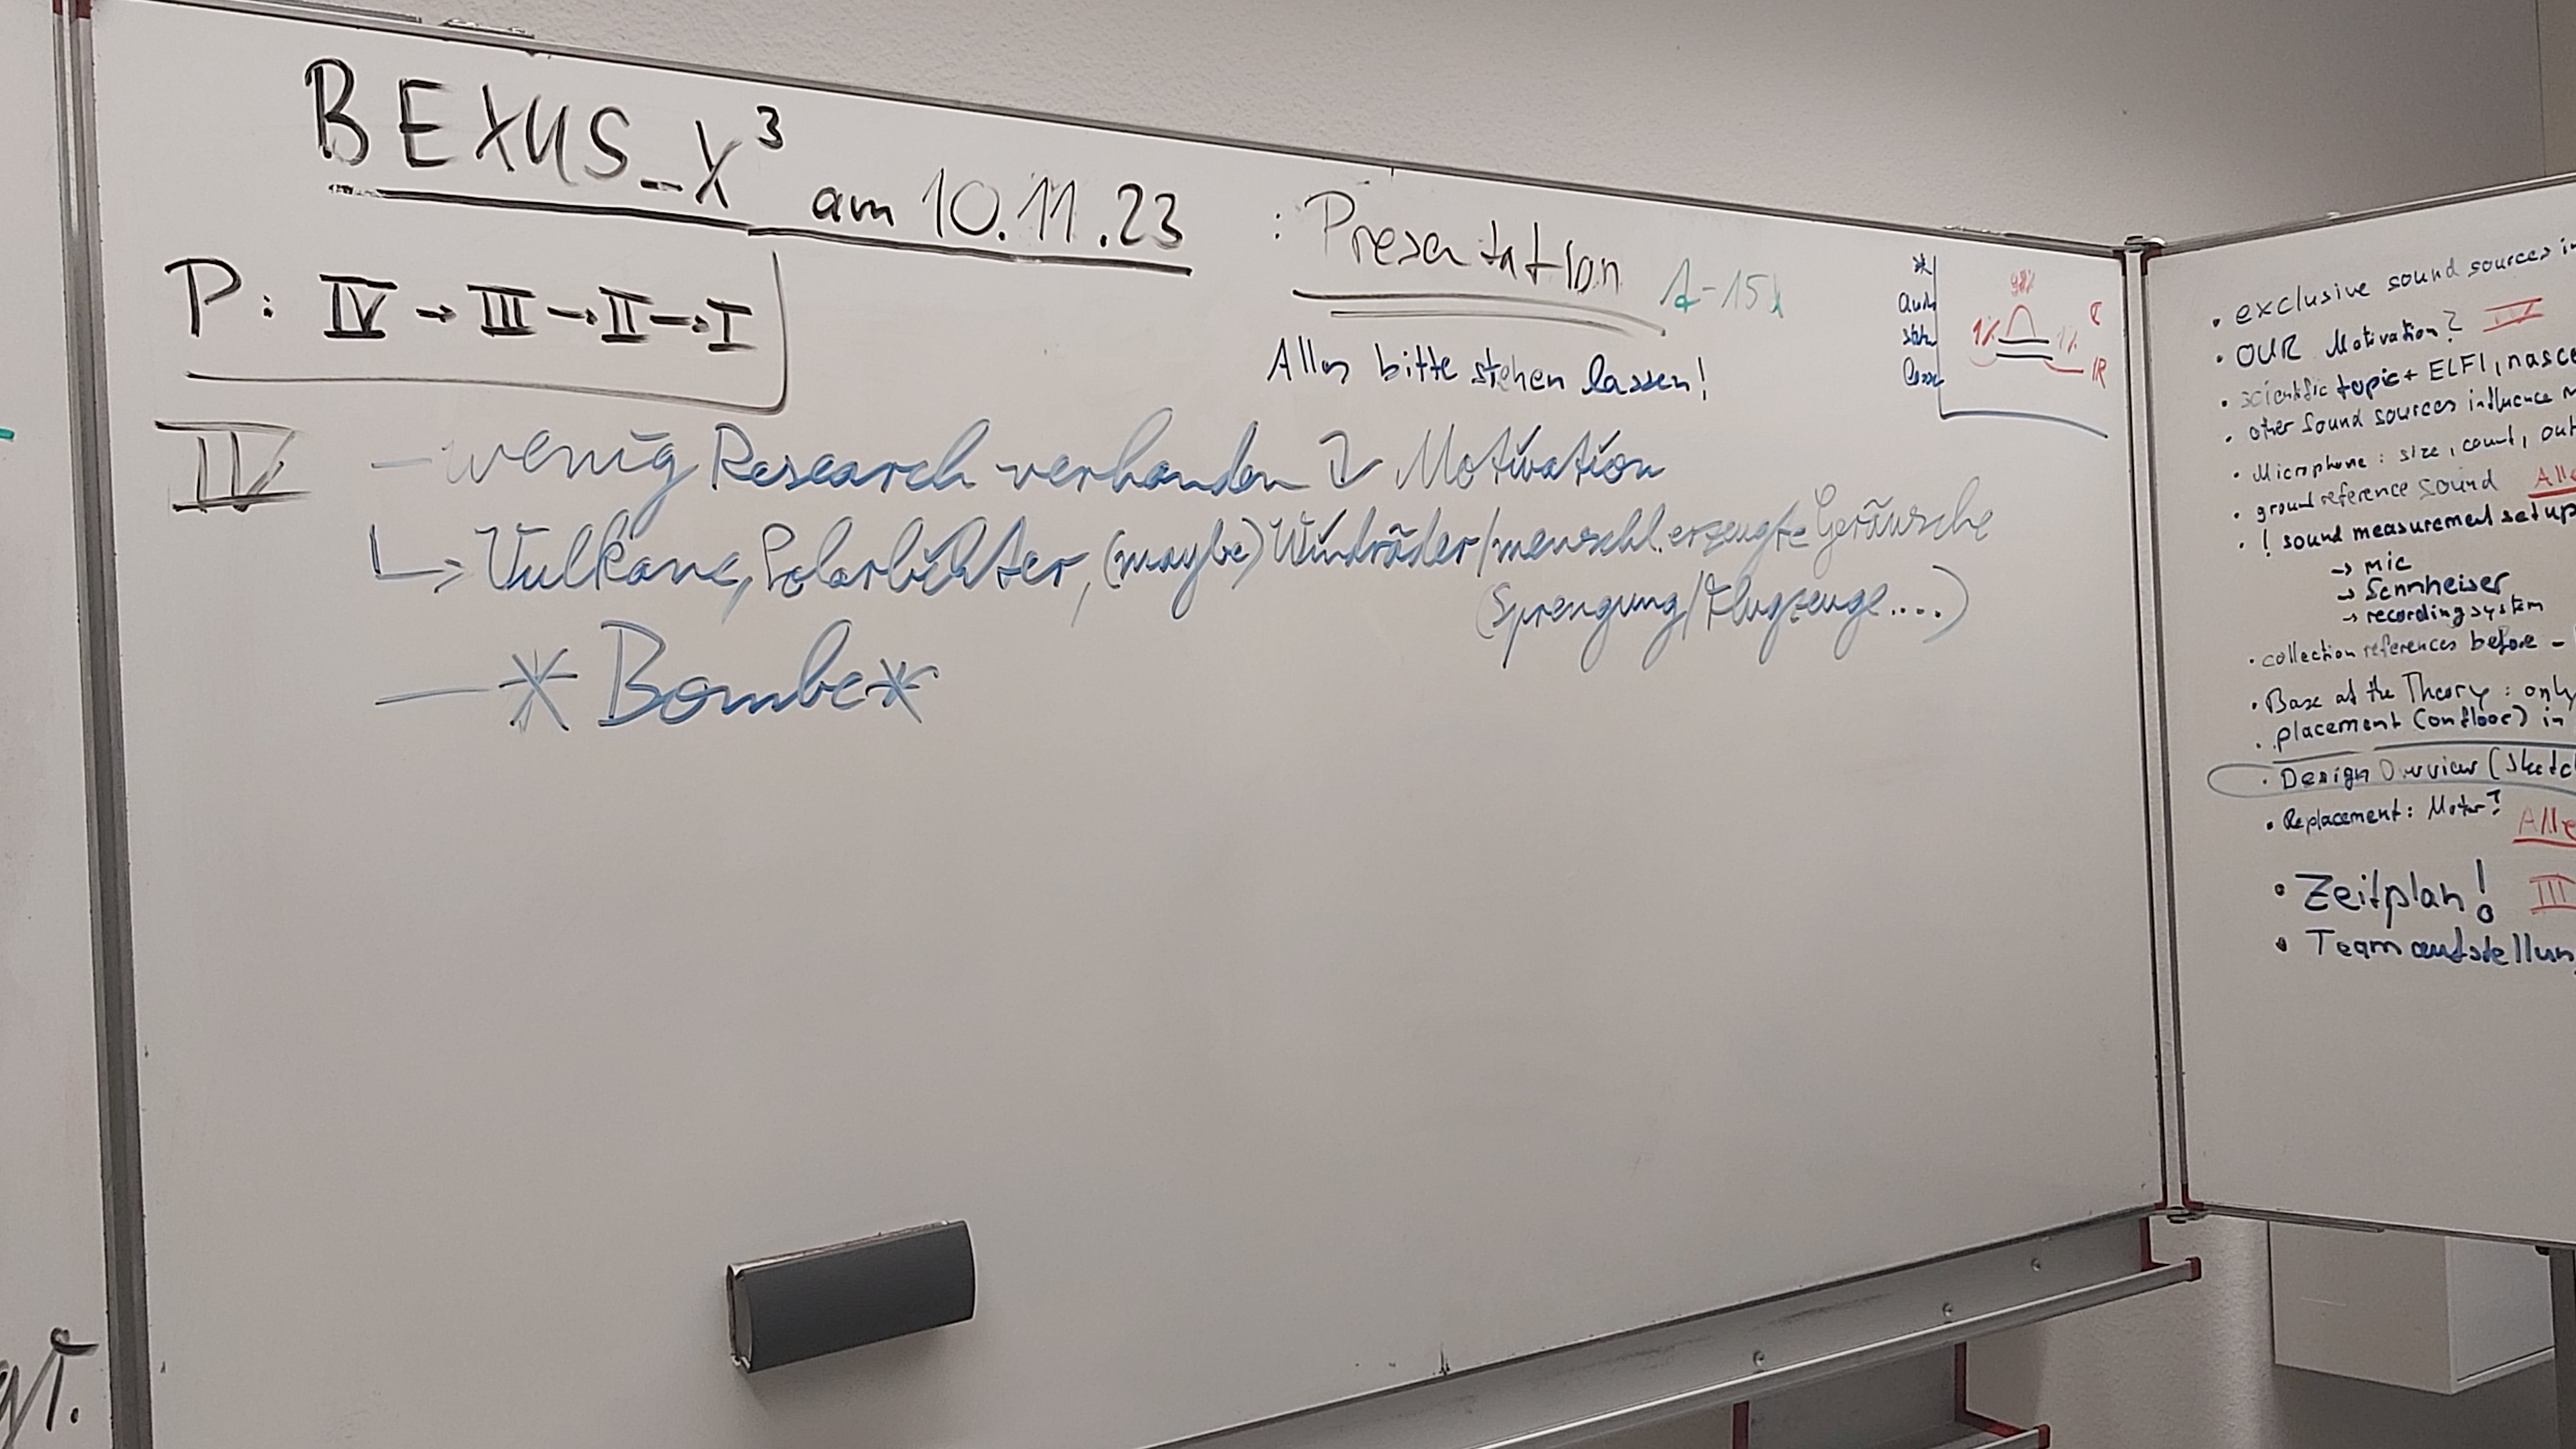 BEXUS_X³ am 10.11.23 : Presentation
P: IV → III → II → I
Alles bitte stehen lassen!
98%
1%
1%
IR
IV - wenig Research vorhanden Motivation
↳ Vulkane, Polarlichter, (maybe) Windräder/menschl. erzeugte Geräusche
(Sprengung/Flugzeuge....)
- * Bombe *
• exclusive sound sources
• OUR Motivation? IV
• scientific topic + ELFI,
• other sound sources influence
• Microphone : size, count,
• ground reference sound
• ! sound measurement setup
→ mic
→ Sennheiser
→ recording system
• collection references before -
• Base of the Theory : only
• placement (on floor) in
• Design Overview
• Replacement: Motor?
Alle
• Zeitplan! III
• Teamaufstellun